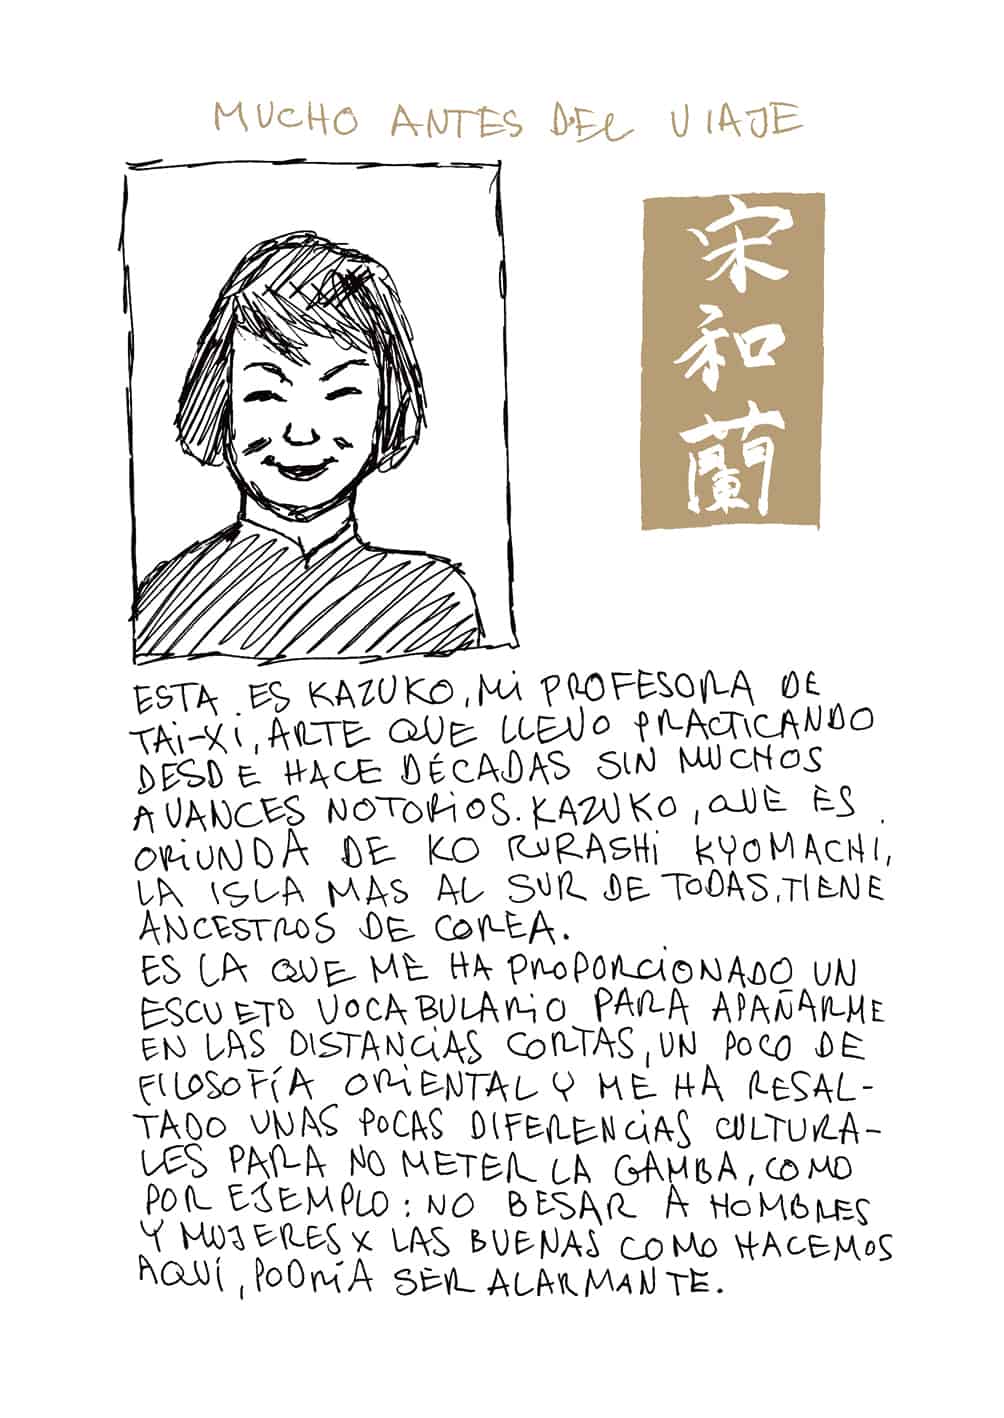 MUCHO ANTES DEL VIAJE
宋
和
蘭
ESTA ES KAZUKO, Mi PROFESORA DE
TAi-Xi, ARTE QUE LLEVO PRACTICANDO
DESDE HACE DÉCADAS SIN MUCHOS
AVANCES NOTORiOS. KAZUKO, QUE ES
ORiUNDA DE KO RURASHi KYOMACHi,
LA ISLA MAS AL SUR DE TODAS, TIENE
ANCESTROS DE COREA.
ES LA QUE ME HA PROPORCiONADO UN
ESCUETO VOCABULARiO PARA APAÑARME
EN LAS DISTANCiAS CORTAS, UN POCO DE
FiLOSOFÍA ORiENTAL Y ME HA RESAL-
TADO UNAS POCAS DIFERENCiAS CULTURA-
LES PARA NO METER LA GAMBA, COMO
POR EJEMPLO: NO BESAR A HOMBRES
Y MUJERES X LAS BUENAS COMO HACEMOS
AQUÍ, PODRÍA SER ALARMANTE.